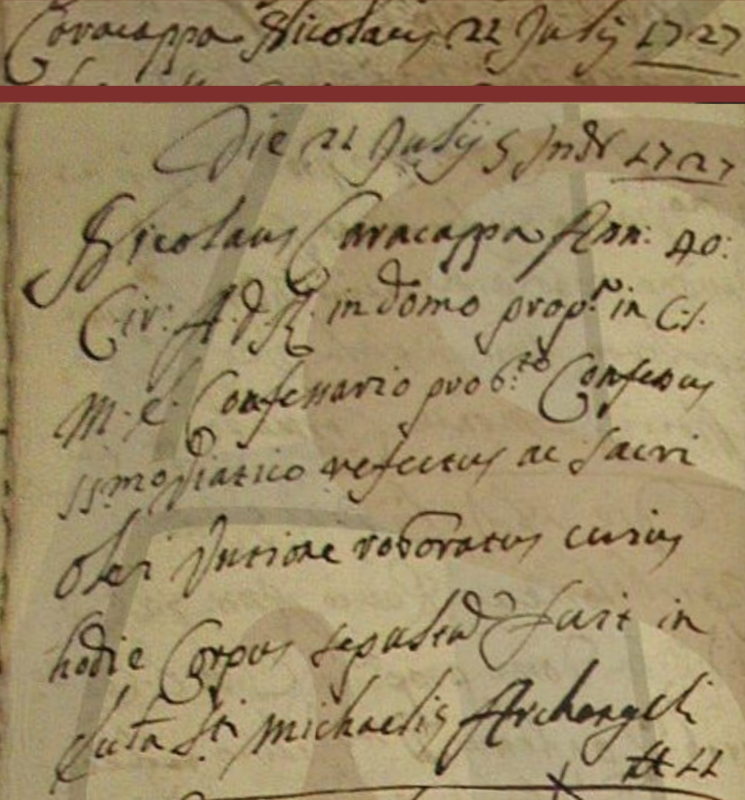 Caracappa Nicolaus 22 Julij 1727
Die 22 Julij 5 Ind: 1727
Nicolaus Caracappa Ann: 40:
Civ: A. d. R. in domo prop.ª in C.S.
M. E. Confessario prob.to Confessus
SS.mo Viatico refectus ac Sacri
Olei Untione roboratus cuius
hodie Corpus sepultũ fuit in
Eccla S.ti Michaelis Archangeli